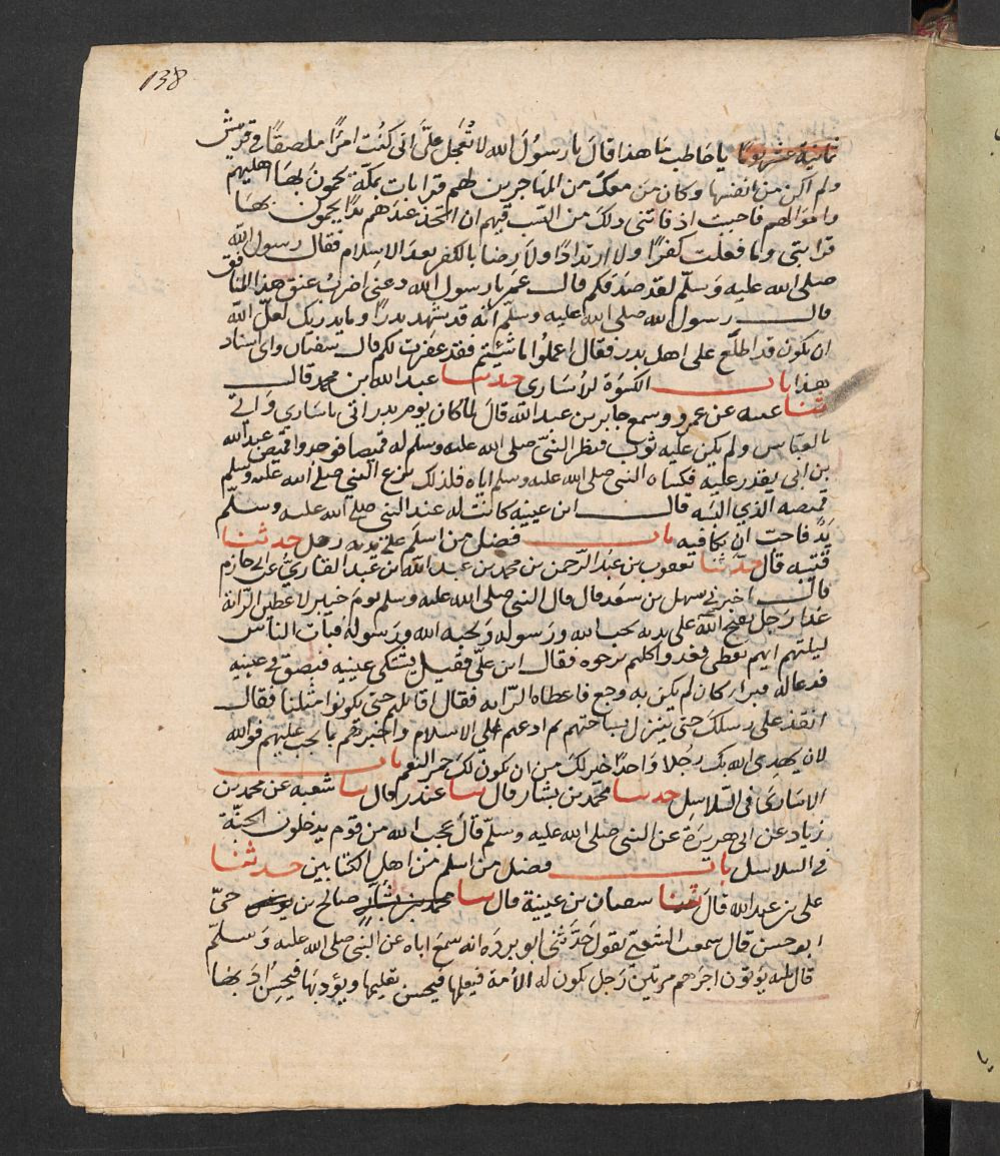 138
ثمانية عشر يوما يا حاطب ما هذا قال يا رسول الله لا تعجل علىّ انى كنت امرًا ملصقًا فى قريش
ولم اكن من انفسها وكان من معك من المهاجرين لهم قرابات بمكة يحمون بها اهليهم
واموالهم فاحببت اذ فاتنى ذلك من النسب فيهم ان اتخذ عندهم يدًا يحمون بها
قرابتى وما فعلت كفرًا ولا ارتدادًا ولا رضا بالكفر بعد الاسلام فقال رسول الله
صلى الله عليه وسلم لقد صدقكم قال عمر يا رسول الله دعنى اضرب عنق هذا المنافق
قال رسول الله صلى الله عليه وسلم انه قد شهد بدرًا وما يدريك لعل الله
ان يكون قد اطلع على اهل بدر فقال اعملوا ما شئتم فقد غفرت لكم قال سفيان واى اسناد
هذا باب الكسوة للأسارى حدثنا عبد الله بن محمد قال
ثنا عيينه عن عمرو وسمع جابر بن عبد الله قال لما كان يوم بدر اتى باسارى واتى
بالعباس ولم يكن عليه ثوب فنظر النبى صلى الله عليه وسلم له قميصا فوجدوا قميص عبد الله
بن ابى يقدر عليه فكساه النبى صلى الله عليه وسلم اياه فلذلك نزع النبى صلى الله عليه وسلم
قميصه الذي البسه قال ابن عيينه كانت له عند النبى صلى الله عليه وسلم
يدٌ فاحب ان يكافيه باب فضل من اسلم على يديه رجل حدثنا
قتيبه قال حدثنا يعقوب بن عبد الرحمن بن محمد بن عبد الله ابن عبد القاريّ عن ابى حازم
قال اخبرنى سهل بن سعد قال قال النبى صلى الله عليه وسلم يوم خيبر لاعطين الراية
غدًا رجل يفتح الله على يديه يحب الله ورسوله ويحبه الله ورسوله فبات الناس
ليلتهم ايهم يعطى فغدوا كلهم يرجوه فقال اين علىّ فقيل يشتكى عينيه فبصق فى عينيه
فدعا له فبرا كان لم يكن به وجع فاعطاه الراية فقال اقاتلهم حتى يكونوا مثلنا فقال
انفذ على رسلك حتى تنزل بساحتهم ثم ادعهم الى الاسلام واخبرهم بما يجب عليهم فوالله
لان يهدى الله بك رجلا واحدًا خير لك من ان يكون لك حمر النعم باب
الاسارى فى السلاسل حدثنا محمد بن بشار قال ثنا غندر قال ثنا شعبه عن محمد بن
زياد عن ابى هريرة عن النبى صلى الله عليه وسلم قال عجب الله من قوم يدخلون الجنة
فى السلاسل باب فضل من اسلم من اهل الكتابين حدثنا
على بن عبد الله قال ثنا سفيان بن عيينة قال ثنا صالح بن حىّ
ابو حسن قال سمعت الشعبى يقول حدثنى ابو برده انه سمع اباه عن النبى صلى الله عليه وسلم
قال ثلثه يؤتون اجرهم مرتين رجل تكون له الأمة فيعلمها فيحسن تعليمها ويؤدبها فيحسن ادبها